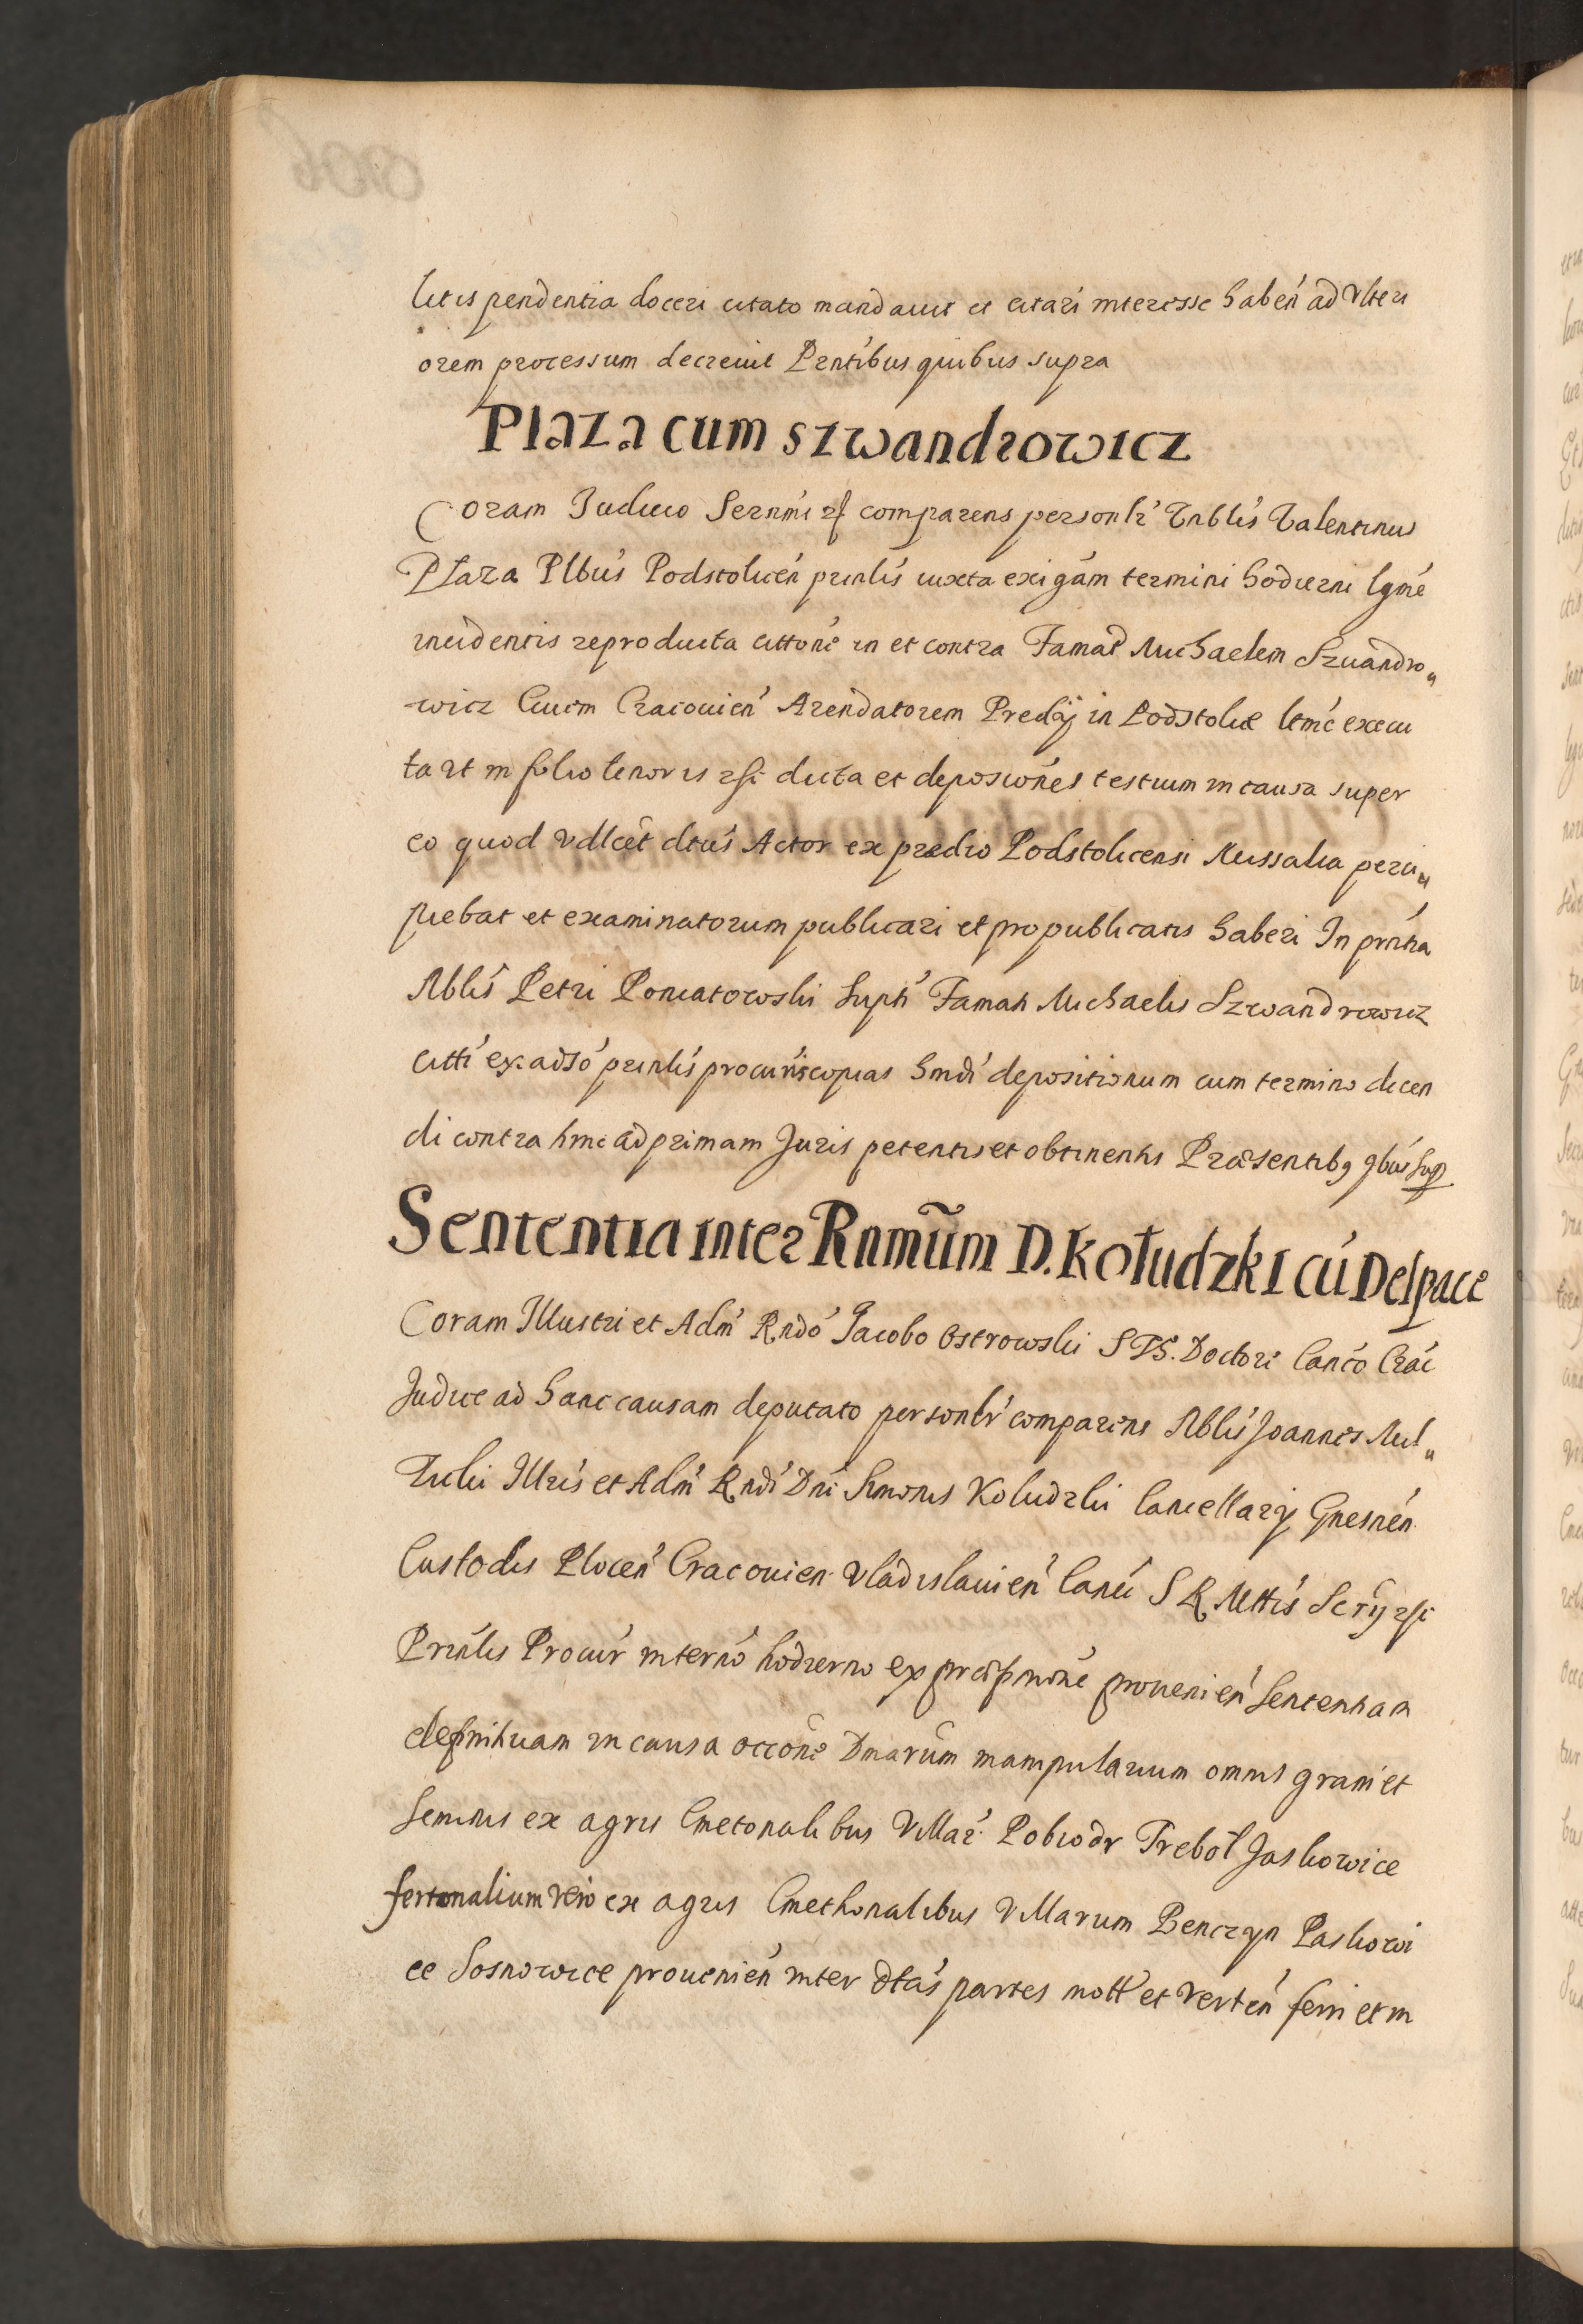 litis pendentia doceri citato mandauit et citari interesse haben̄ ad Vlteri
orem processum decreuit Pr̄ntibus quibus supra
Plaza cum szwandrowicz
Coram Judicio Seren̄mi comparens personl̄r Valentinus
Plaza Pl̄bus Podstolicen̄ prin̄lis iuxta exigām termini hodierni l̄gme
incidentis reproducta citt̄one in et contra Famat̄ Michaelem Szuandro„
wicz Ciuem Cracouien̄ Arendatorem Predij in Podstolice l̄tme execu
ta et in folio tenoris dicta et deposiōnes testium in causa super
eo quod vdl̄cet dt̄us Actor ex prædio Podstolicensi Missalia perci„
piebat et examinatorum publicari et pro publicatis haberi In pr̄ntia
Nb̄lis Petri Poniatowski Famati Michaelis Szwandrowicz
citt̄i ex adso prin̄lis procur̄is copias hm̄di depositionum cum termino dicen
di contra hinc ad primam Juris petentis et obtinentis Præsentibq qbūs sup
Sententia inter Rn̄mum D. Kołudzki cū Despace
Coram Illustri et Adm̄ Rn̄do Jacobo Ostrowski S T S. Doctori Can̄co Crac̄
Judice ad hanc causam deputato personl̄r comparens Nb̄lis Joannes Mil„
Illr̄is et Adm̄ Rn̄di Dn̄i Simonis Koludzki Cancellarij Gnesnen̄
Custodis Plocen̄ Cracouien Vladislauien̄ Can̄ci S R Mtt̄is Secr̄ij
Prin̄lis Procur̄ in tern̄o hodierno ex pro̅uenien̄ Sententiam
definitiuam in causa occōne Dmarum manipularium omnis grani et
seminis ex agris Cmetonalibus Villar̄ Pobiodr Trebol Jaskowice
fertonalium vero ex agris Cmethonalibus Villarum Benczyn Paskowi
ce Sosnowice prouenien̄ inter dt̄as partes mott̄ et verten̄ ferri et in